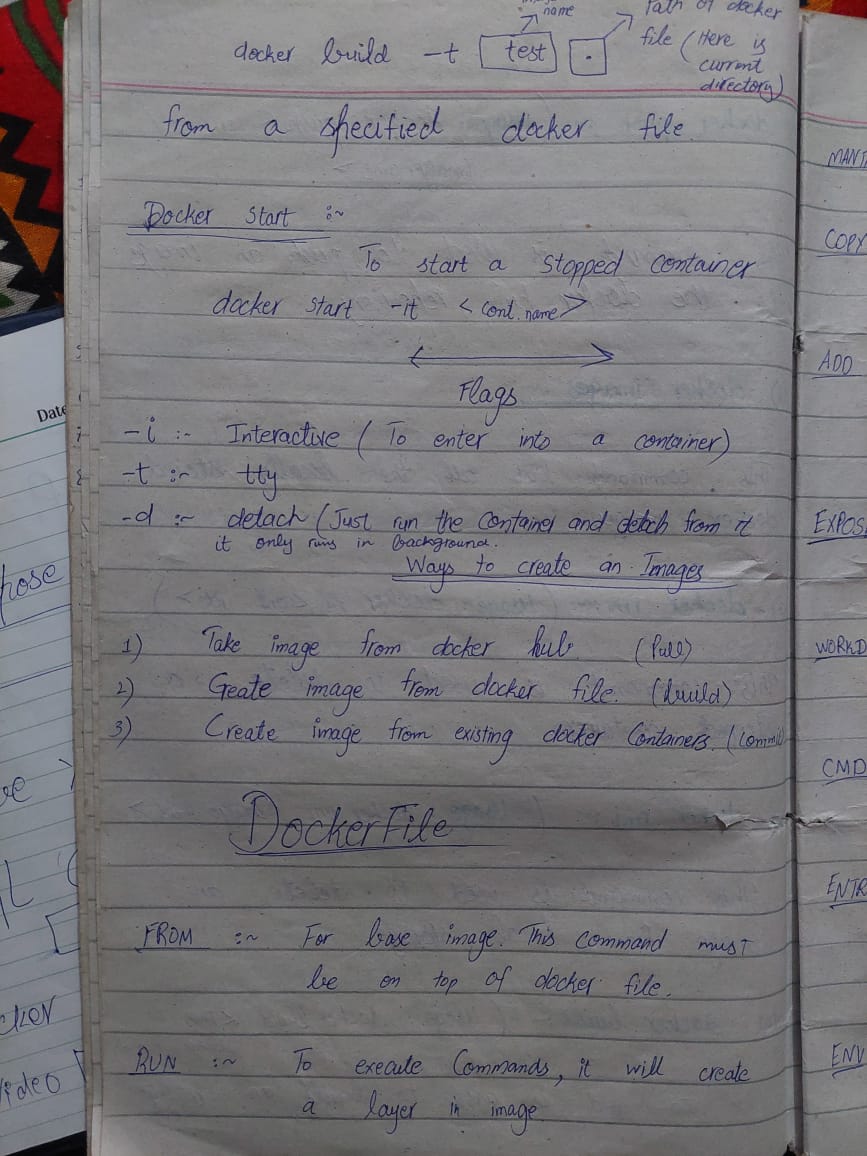 name
Path of docker
file (Here is
current
directory)
docker build -t test .
from a specified docker file
Docker Start :~
To start a stopped container
docker start -it <cont. name>
Flags
-i :- Interactive (To enter into a container)
-t :~ tty
-d :~ detach (Just run the Container and detach from it
it only runs in background.
Ways to create an Images
1) Take image from docker hub (Pull)
2) Create image from docker file. (build)
3) Create image from existing docker Containers. (Commi
DockerFile
FROM :~ For base image. This command must
be on top of docker file.
RUN :~ To execute Commands, it will create
a layer in image
COPY
ADD
EXPOS
WORKD
CMD
ENTR
ENV
Date
video